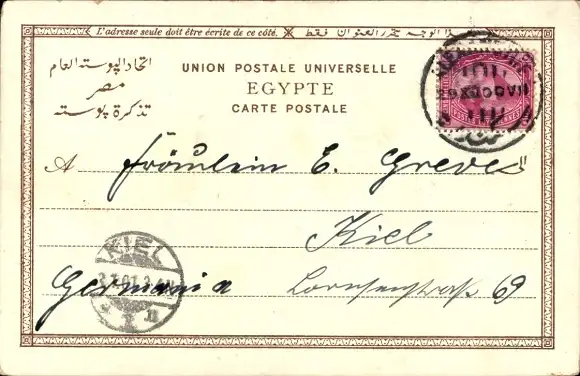 L'adresse seule doit être écrite de ce côté.
اتحاد البوستة العام
مصر
تذكرة بوسته
UNION POSTALE UNIVERSELLE
EGYPTE
CARTE POSTALE
A Fräulein E. Greves
Kiel
Germania Lornsenstraße 69
KIEL